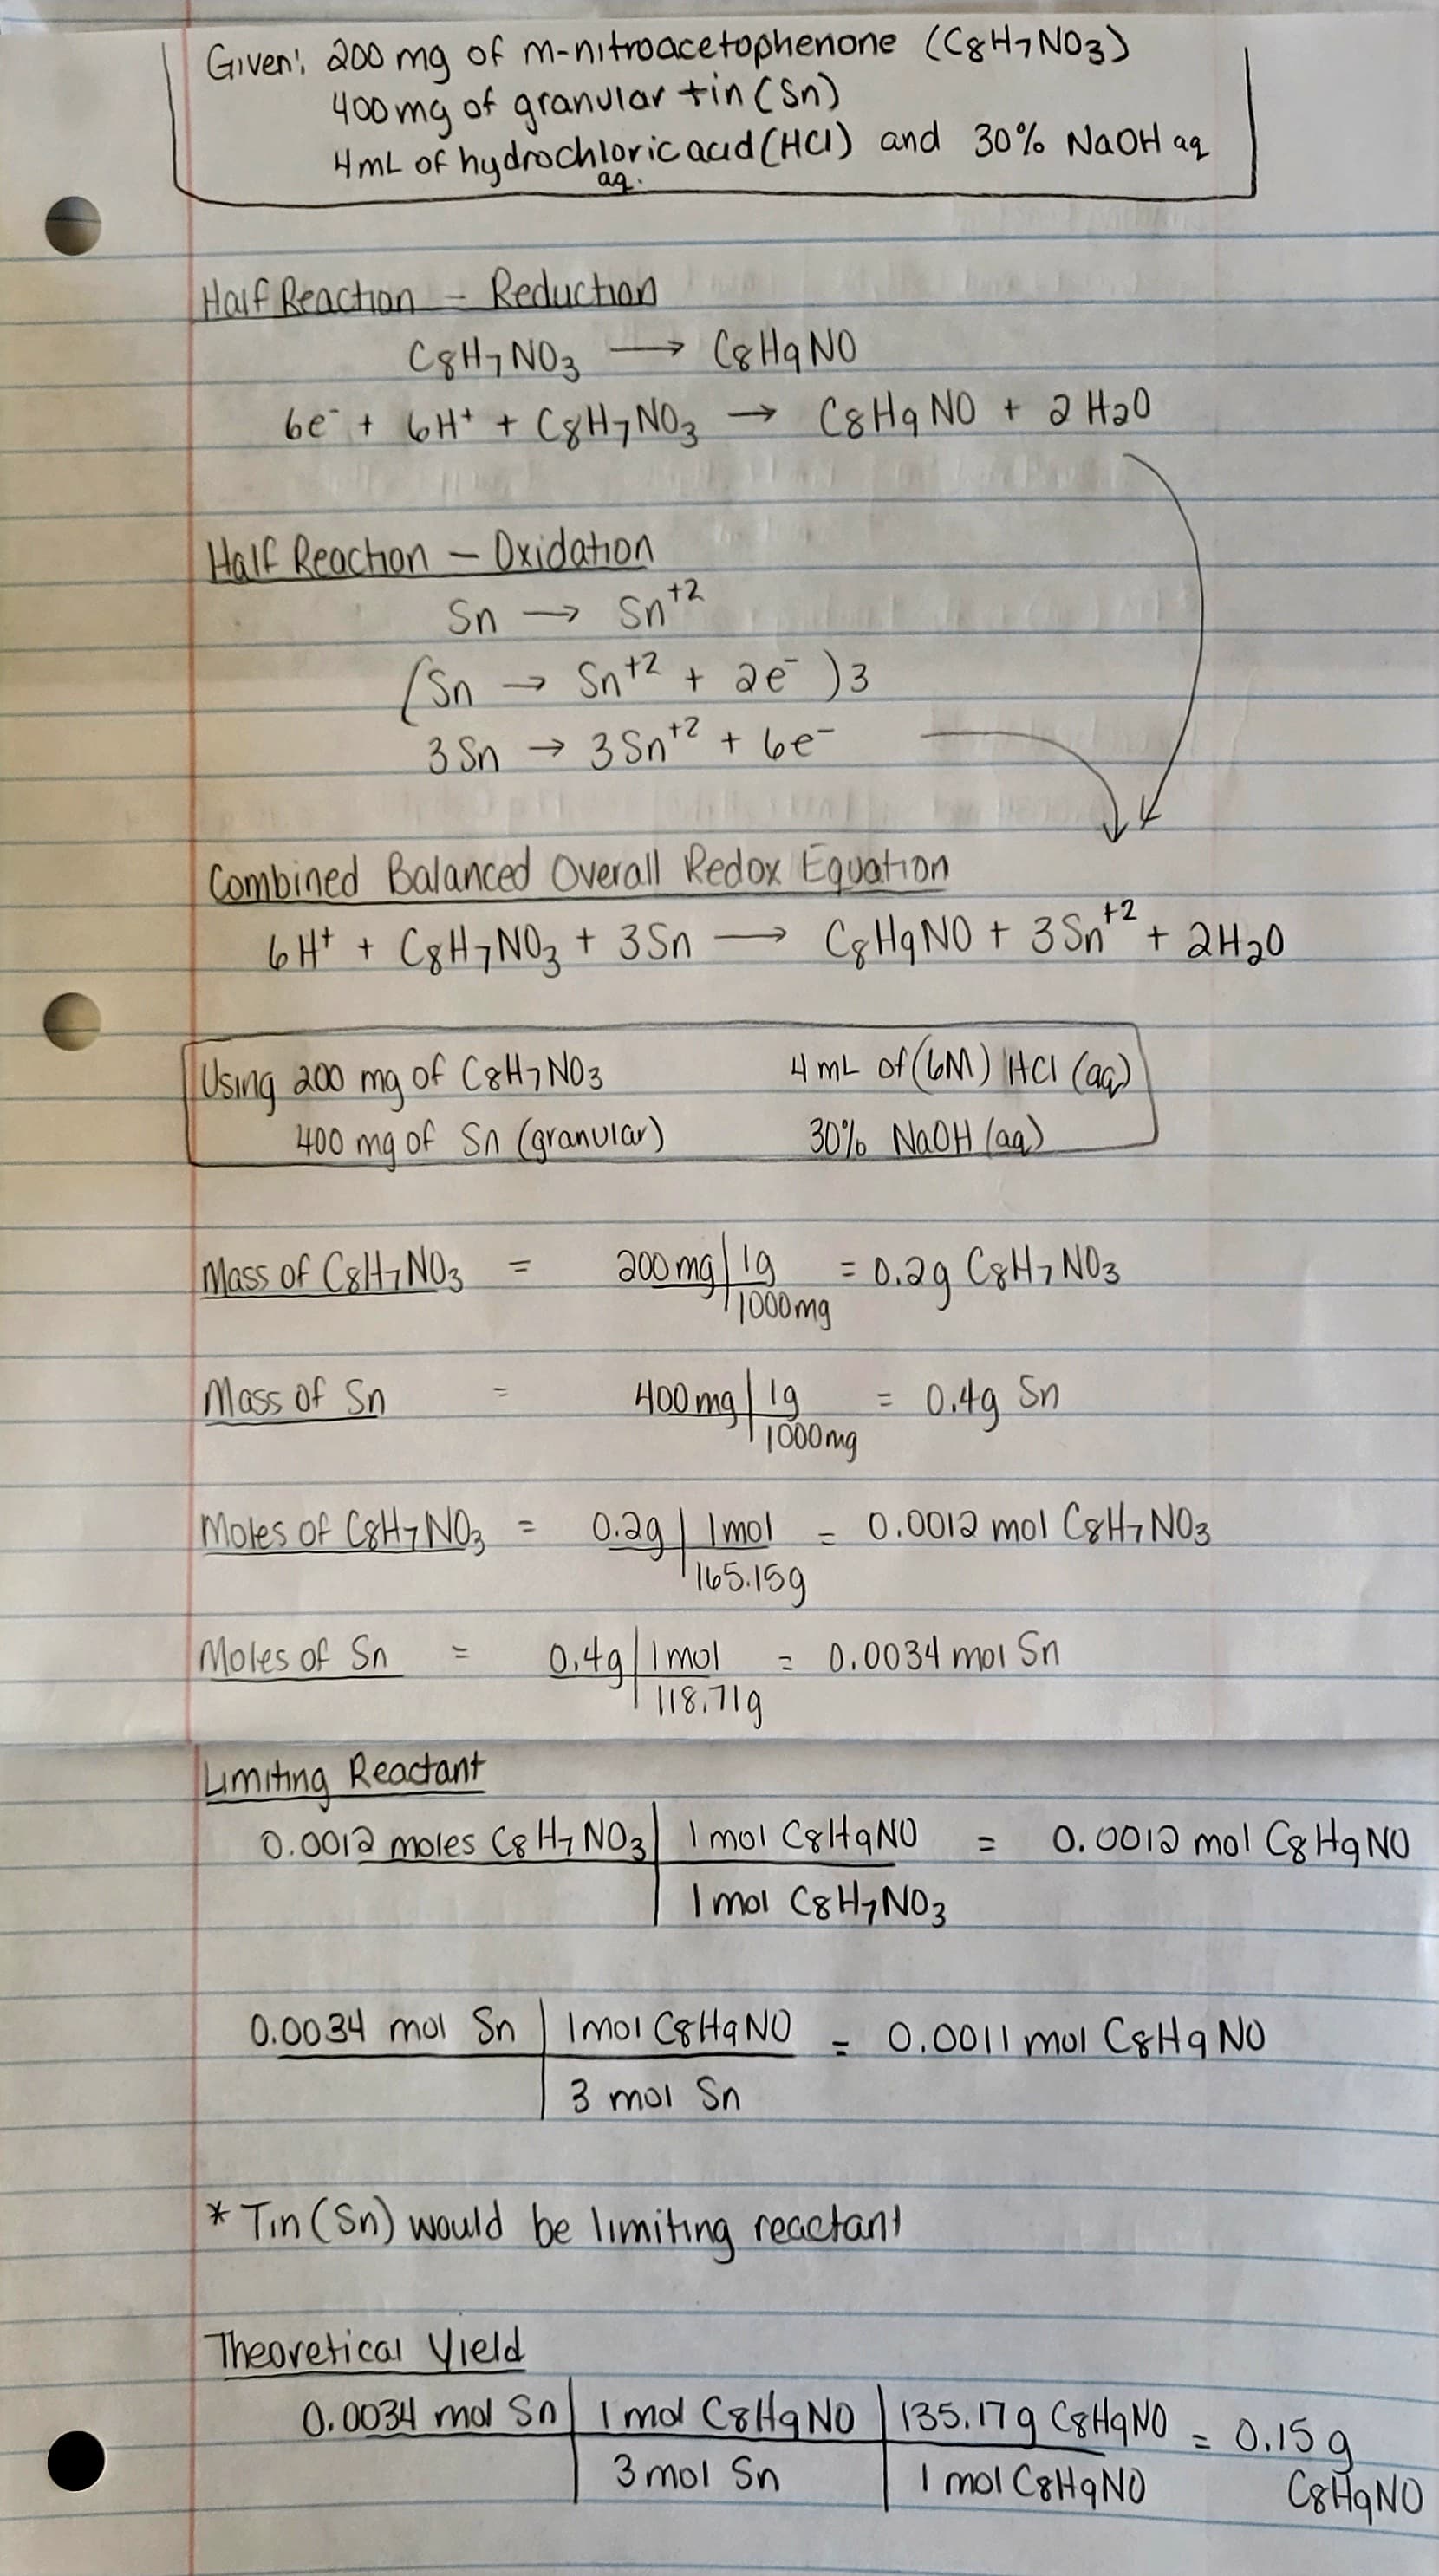 Given: 200 mg of m-nitroacetophenone (C8H7NO3)
400 mg of granular tin (Sn)
4 mL of hydrochloric acid (HCl) and 30% NaOH aq
aq.
Half Reaction - Reduction
C8H7NO3 → C8H9NO
6e⁻ + 6H⁺ + C8H7NO3 → C8H9NO + 2H2O
Half Reaction - Oxidation
Sn → Sn⁺²
(Sn → Sn⁺² + 2e⁻)3
3Sn → 3Sn⁺² + 6e⁻
Combined Balanced Overall Redox Equation
6H⁺ + C8H7NO3 + 3Sn → C8H9NO + 3Sn⁺² + 2H2O
Using 200 mg of C8H7NO3 4 mL of (6M) HCl (aq)
400 mg of Sn (granular) 30% NaOH (aq)
Mass of C8H7NO3 = 200 mg | 1g = 0.2g C8H7NO3
1000mg
Mass of Sn = 400 mg | 1g = 0.4g Sn
1000mg
Moles of C8H7NO3 = 0.2g | 1mol = 0.0012 mol C8H7NO3
165.15g
Moles of Sn = 0.4g | 1mol = 0.0034 mol Sn
118.71g
Limiting Reactant
0.0012 moles C8H7NO3 | 1 mol C8H9NO = 0.0012 mol C8H9NO
1 mol C8H7NO3
0.0034 mol Sn | 1mol C8H9NO = 0.0011 mol C8H9NO
3 mol Sn
* Tin (Sn) would be limiting reactant
Theoretical Yield
0.0034 mol Sn | 1 mol C8H9NO | 135.17g C8H9NO = 0.15 g
3 mol Sn | 1 mol C8H9NO C8H9NO